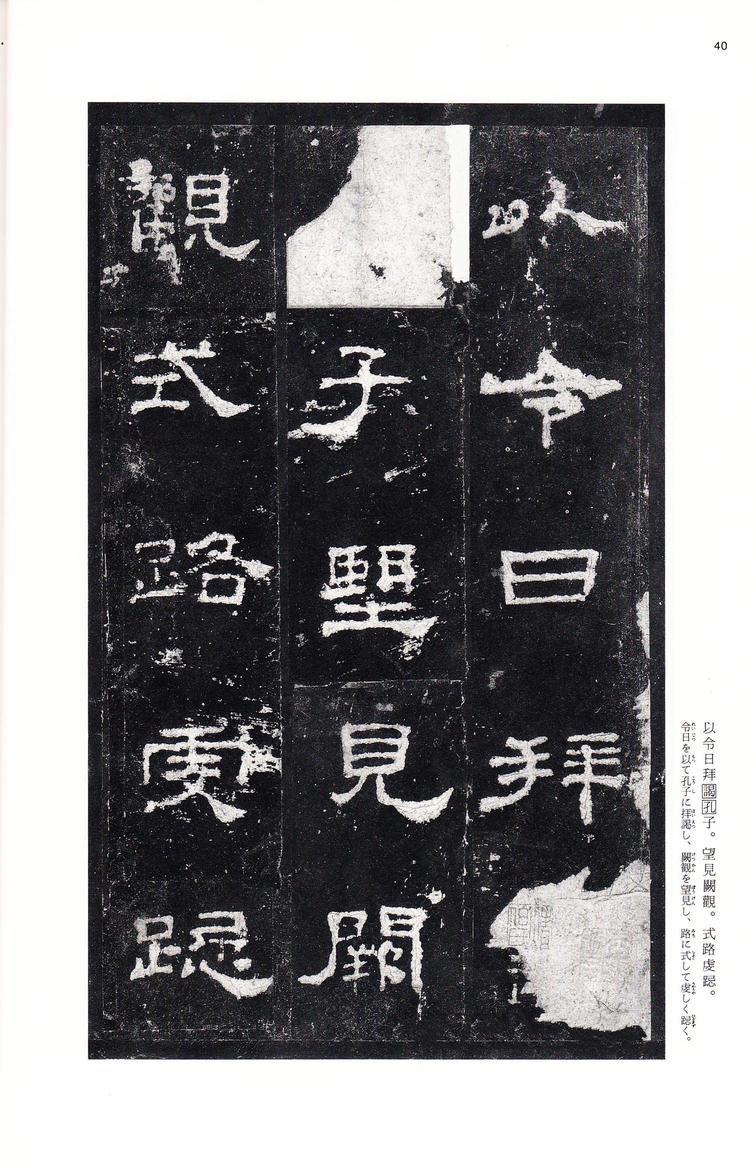 40
以令日拜
子望見闕
觀式路虔跽
以令日拜謁孔子。望見闕觀。式路虔跽。
令日を以て孔子に拝謁し、闕觀を望見し、路に式して虔しく跽く。